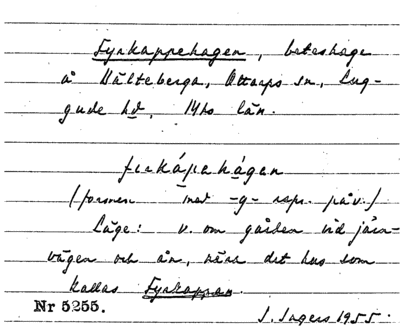 Fyrkappehagen, beteshage
å Välteberga, Ottarps sn, Lug-
gude hd, Mhs län.
fırkápehágen
(formen med -g- rapp. på v.)
Läge: v. om gården vid järn-
vägen och ån, nära det hus som
kallas Fyrkappan.
Nr 5255.
J. Ingers 1955.